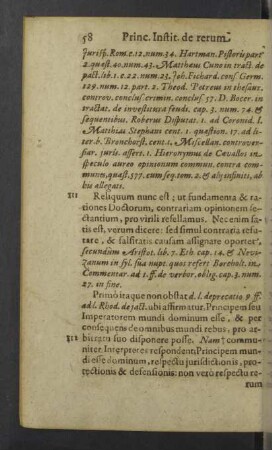 58 Princ. Instit. de rerum
jurisp. Rom. c. 12. num. 34. Hartman. Pistoris pars
2. quæst. 40. num. 43. Matthæus Cuno in tract. de
pact. lib. 1. c. 22. num. 23. Joh. Fichard. cons. Germ.
129. num. 12. part. 2. Theod. Petreus in thesaur.
controv. conclus. crimin. conclus. 57. D. Bocer. in
tractat. de investitura feud. cap. 3. num. 74. &
sequentibus. Roberus Disputat. 1. ad Coronid. I.
Matthias Stephani cent. 1. quæstion. 17. ad li-
ter. b. Bronchorst. cent. 1. Miscellan. controver-
siar. juris. assert. 1. Hieronymus de Cavallos in
speculo aureo opinionum commun. contra com-
mun. quæst. 377. cum seq. tom. 2. & alij infiniti, ab
his allegati.
111 Reliquum nunc est; ut fundamenta & ra-
tiones Doctorum, contrariam opinionem se-
ctantium, pro virili refellamus. Nec enim sa-
tis est, verum dicere: sed simul contraria refu-
tare, & falsitatis causam assignare oportet,
secundum Aristot. lib. 7. Eth. cap. 14. & Nevi-
zanum in syl.
Commentar. ad l. ff. de verbor. oblig. cap. 3. num.
27. in fine.
Primò itaque non obstat d. l. deprecatio 9. ff.
ad l. Rhod. de jact. ubi affirmatur, Principem seu
Imperatorem mundi dominum esse, & per
consequens de omnibus mundi rebus, pro ar-
112 bitratu suo disponere posse. Nam † commu-
niter Interpretes respondent, Principem mun-
di esse dominum, respectu jurisdictionis, pro-
tectionis & defensionis: non verò respectu re-
rum